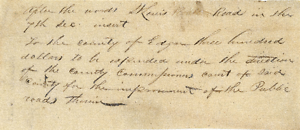 After the words Road in the
7th Sec. insert
To the county of Edgar three hundred
dollars to be expended under the direction
of the county Commissioners court of said
county for the improvement of the Public
roads therein